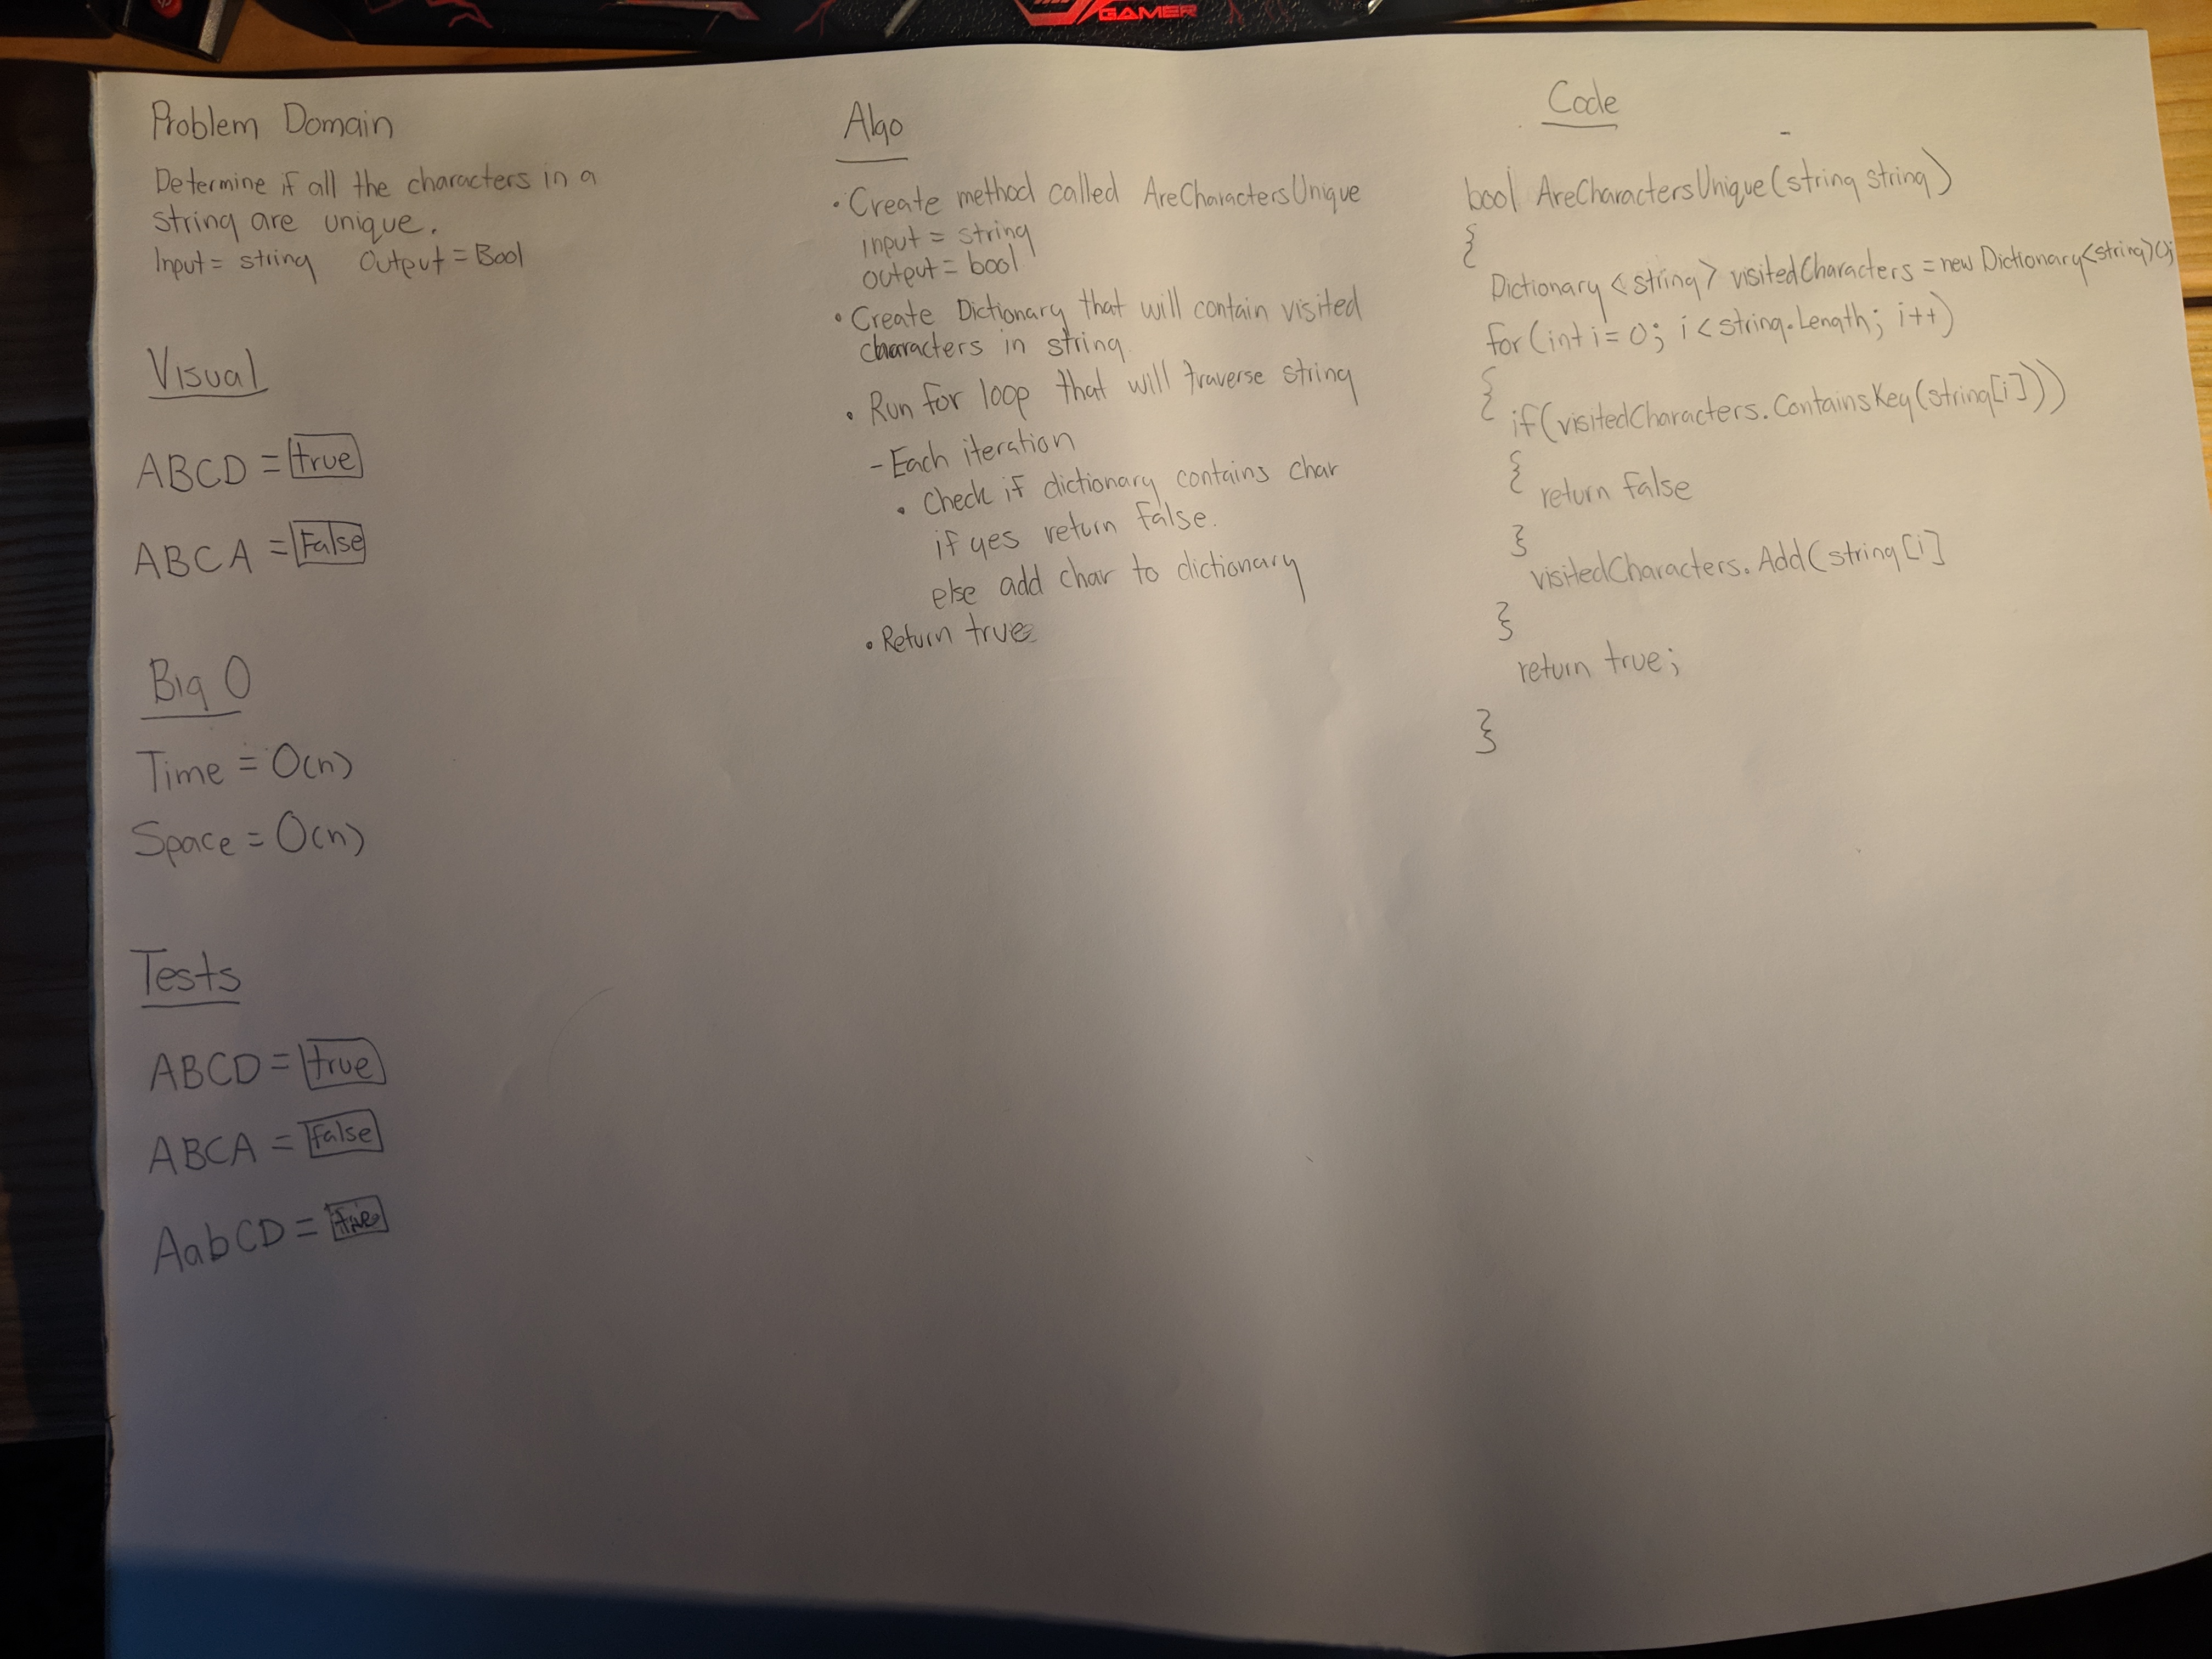 GAMER
Problem Domain
Determine if all the characters in a
string are unique.
Input = string Output = Bool
Visual
ABCD = true
ABCA = False
Big O
Time = O(n)
Space = O(n)
Tests
ABCD = true
ABCA = False
AabCD = true
Algo
• Create method called AreCharactersUnique
input = string
output = bool
• Create Dictionary that will contain visited
characters in string.
• Run for loop that will traverse string
- Each iteration
• Check if dictionary contains char
if yes return false.
else add char to dictionary
• Return true
Code
bool AreCharactersUnique(string string)
{
Dictionary <string> visitedCharacters = new Dictionary<string>();
for(int i = 0; i < string.Length; i++)
{
if(visitedCharacters.ContainsKey(string[i]))
{
return false
}
visitedCharacters.Add(string[i]
}
return true;
}